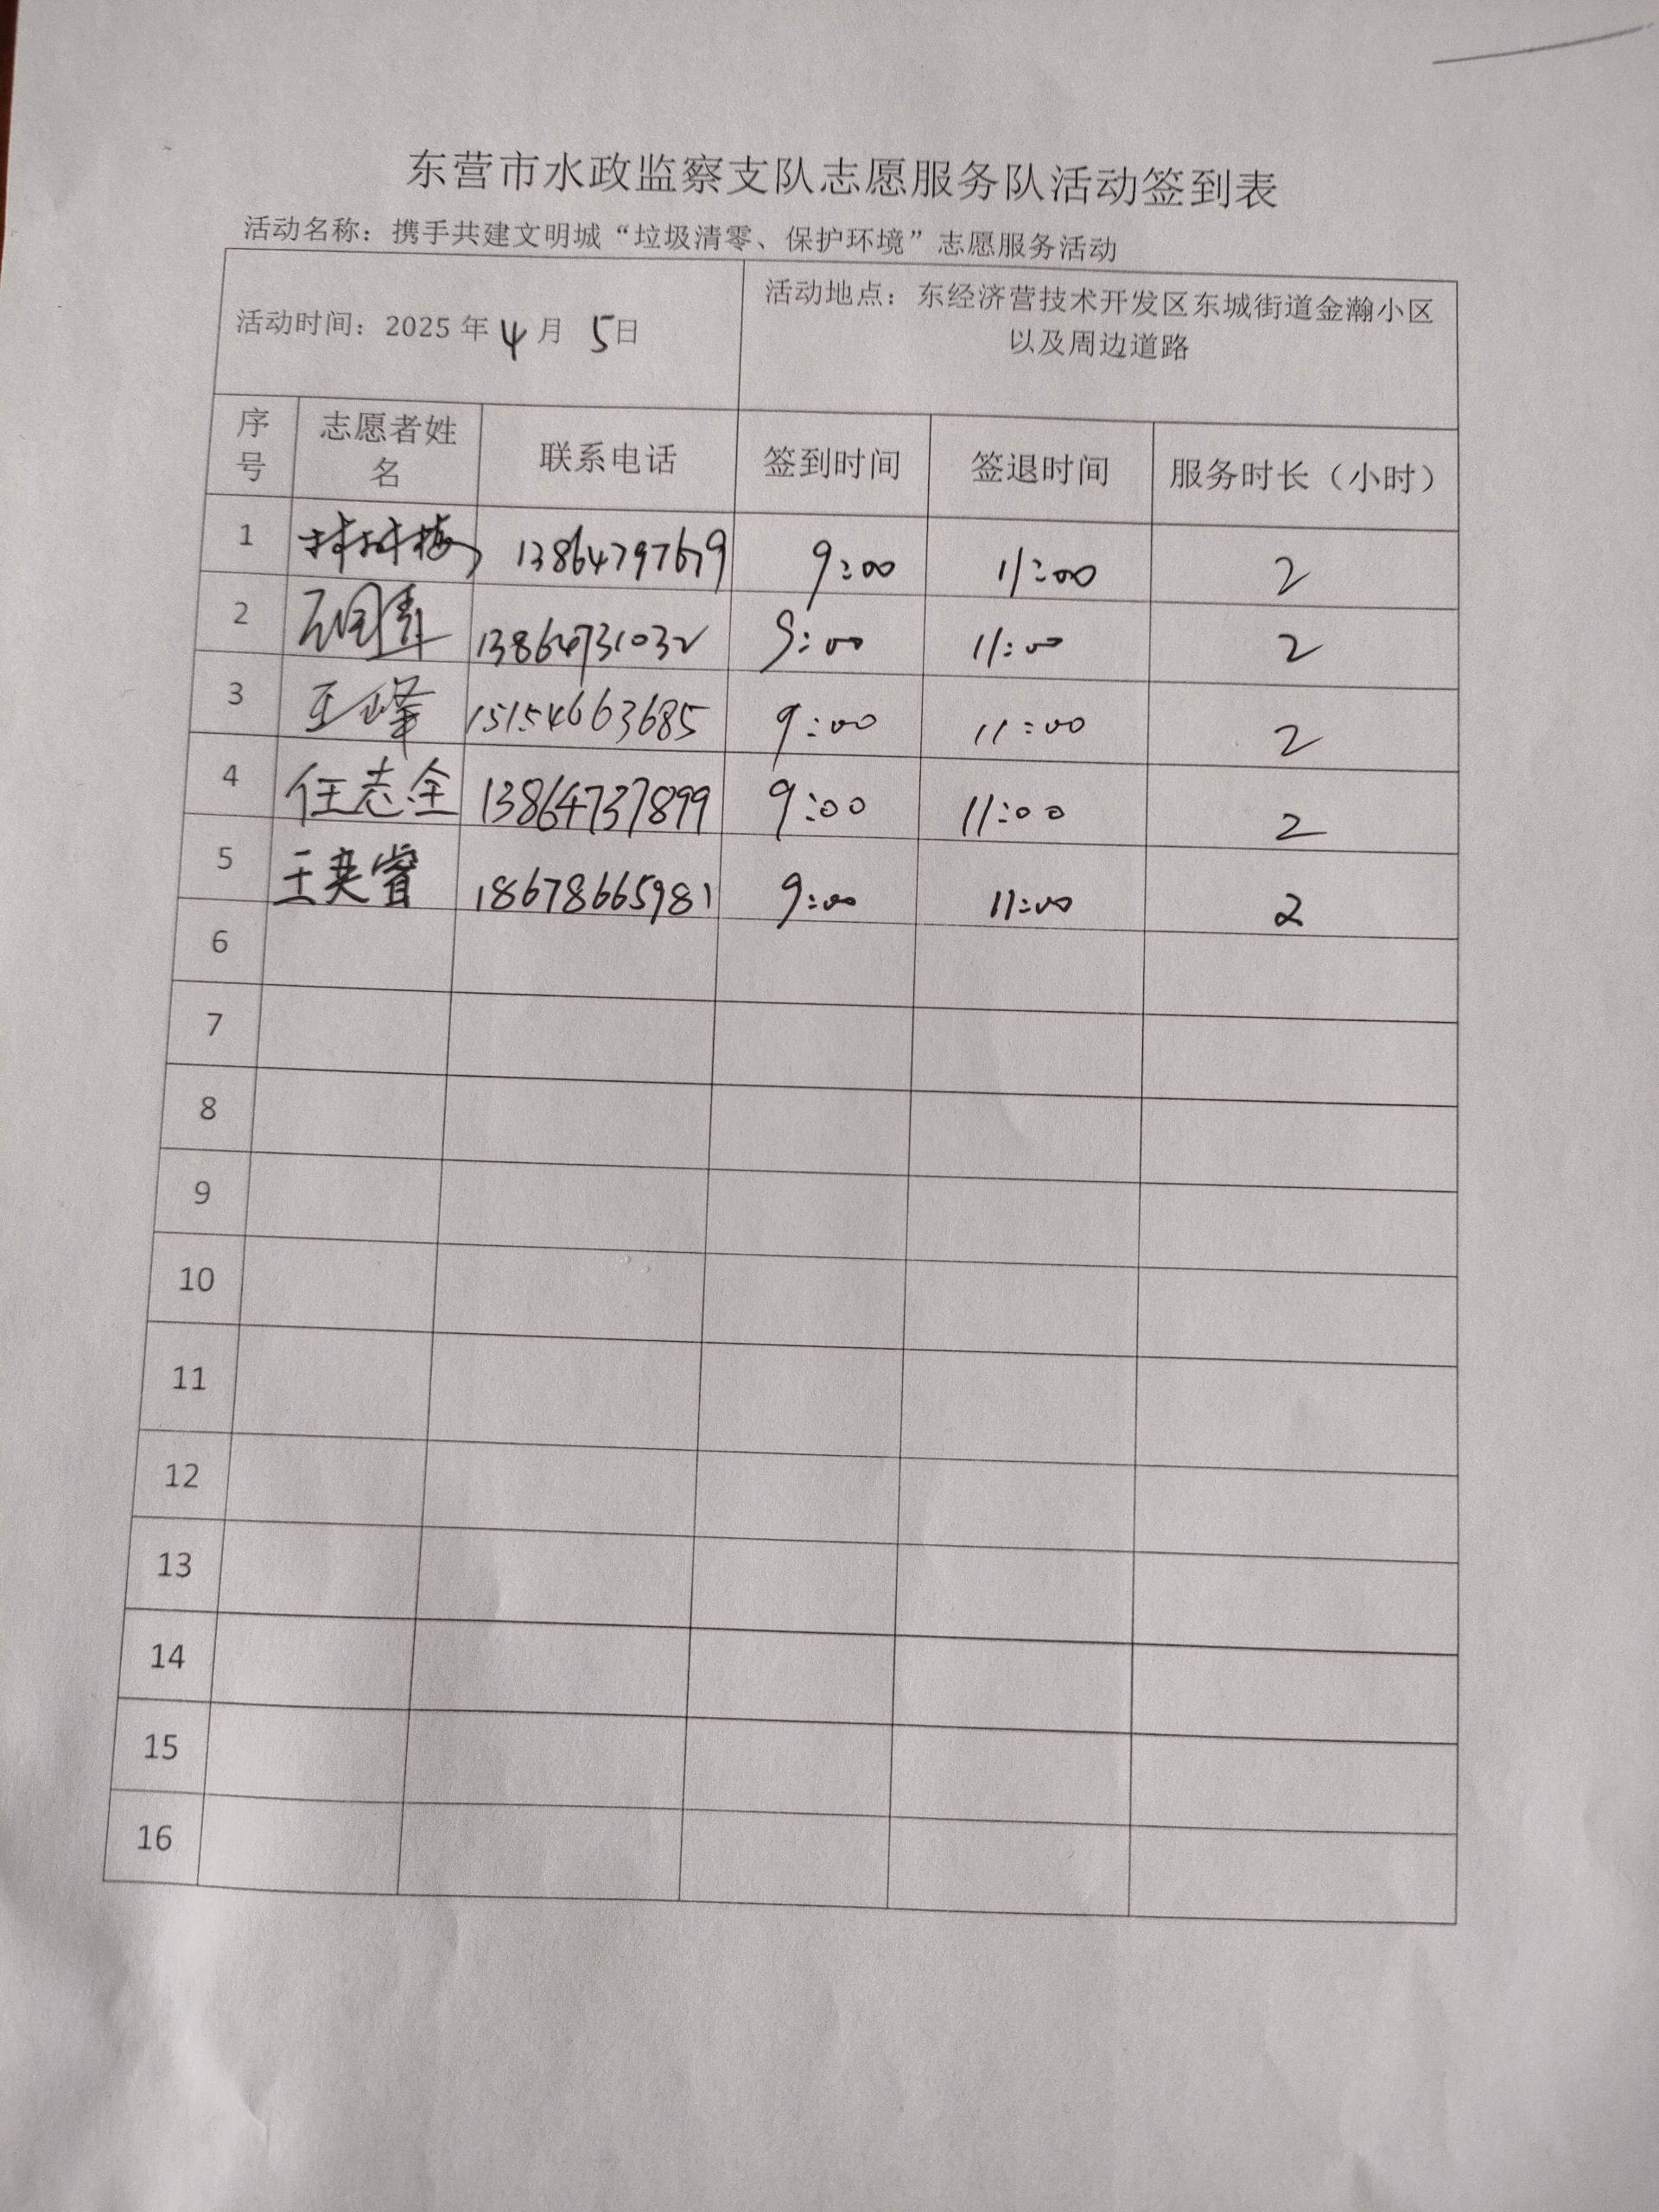 东营市水政监察支队志愿服务队活动签到表
活动名称：携手共建文明城“垃圾清零、保护环境”志愿服务活动
活动时间：2025年4月5日 活动地点：东经济营技术开发区东城街道金瀚小区
以及周边道路
序号 志愿者姓名 联系电话 签到时间 签退时间 服务时长（小时）
1 林梅 13864797679 9:00 11:00 2
2 13864731032 9:00 11:00 2
3 王峰 15154663685 9:00 11:00 2
4 任志全 13864737899 9:00 11:00 2
5 王奕睿 18678665981 9:00 11:00 2
6
7
8
9
10
11
12
13
14
15
16